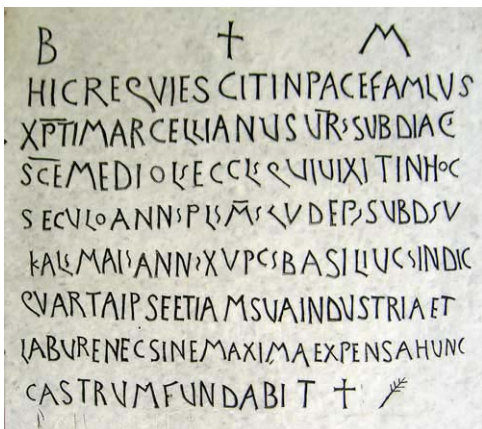 B ✝ M
HICREQVIESCITINPACEFAMLVS
XP̅T̅IMARCELLIANUSUR̅SSUBDIAC̅
SC̅EMEDIOLSECCLSQUIUIXITINHOC
SECULOANNSPLSM̅SLVDEPSSUBDSV
KALSMAISANNSXVPCSBASILIVCSINDIC
QVARTAIPSEETIAMSUAINDVSTRIAET
LABURENECSINEMAXIMAEXPENSAHUNC
CASTRVMFUNDABIT ✝